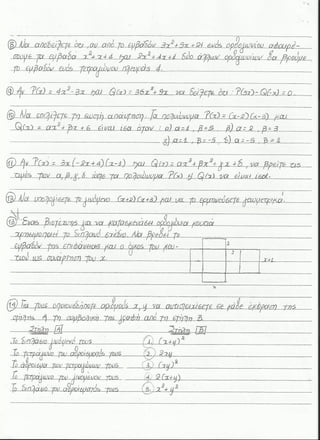 ⑧ Να αποδείξετε ότι αν από το εμβαδόν 3x²+9x+21 ενός ορθογωνίου αφαιρέ-
σουμε τα εμβαδά x²+x+4 και 2x²+4x+1 δύο άλλων ορθογωνίων θα βρούμε
το εμβαδόν ενός τετραγώνου πλευράς 4.
⑨ Αν P(x) = 4x²-3x και Q(x) = 36x²+9x να δείξετε ότι P(3x)-Q(-x)=0.
⑩ Να επιλέξετε τη σωστή απάντηση. Τα πολυώνυμα P(x) = (x-2)(x-3) και
Q(x) = αx²+βx+6 είναι ίσα όταν: α) α=1, β=5 β) α=2, β=3
γ) α=1, β=-5, δ) α=-5, β=1
⑪ Αν P(x) = 3x(-2x+4)(x-1) και Q(x) = αx³+βx²+γx+δ, να βρείτε τις
τιμές των α, β, γ, δ ώστε τα πολυώνυμα P(x) και Q(x) να είναι ίσα.
⑫ Να υπολογίσετε το γινόμενο (x+2)(x+3) και να το ερμηνεύσετε γεωμετρικά.
⑬ Ένας βιοτέχνης για να κατασκευάσει ορθογώνια κουτιά
χρησιμοποιεί το διπλανό σχέδιο. Να βρεθεί το
εμβαδόν της επιφάνειας και ο όγκος του κου-
τιού ως συνάρτηση του x.
2
2
x+1
x
⑭ Για τους οποιουσδήποτε αριθμούς x, y να αντιστοιχίσετε σε κάθε έκφραση της
στήλης Α τη συμβολική της γραφή από τη στήλη Β.
Στήλη Α Στήλη Β
Το διπλάσιο γινόμενό τους 1. (x+y)²
Το τετράγωνο του αθροίσματός τους 2. 2xy
Το άθροισμα των τετραγώνων τους 3. (xy)²
Το τετράγωνο του γινομένου τους 4. 2(x+y)
Το διπλάσιο του αθροίσματός τους 5. x²+y²